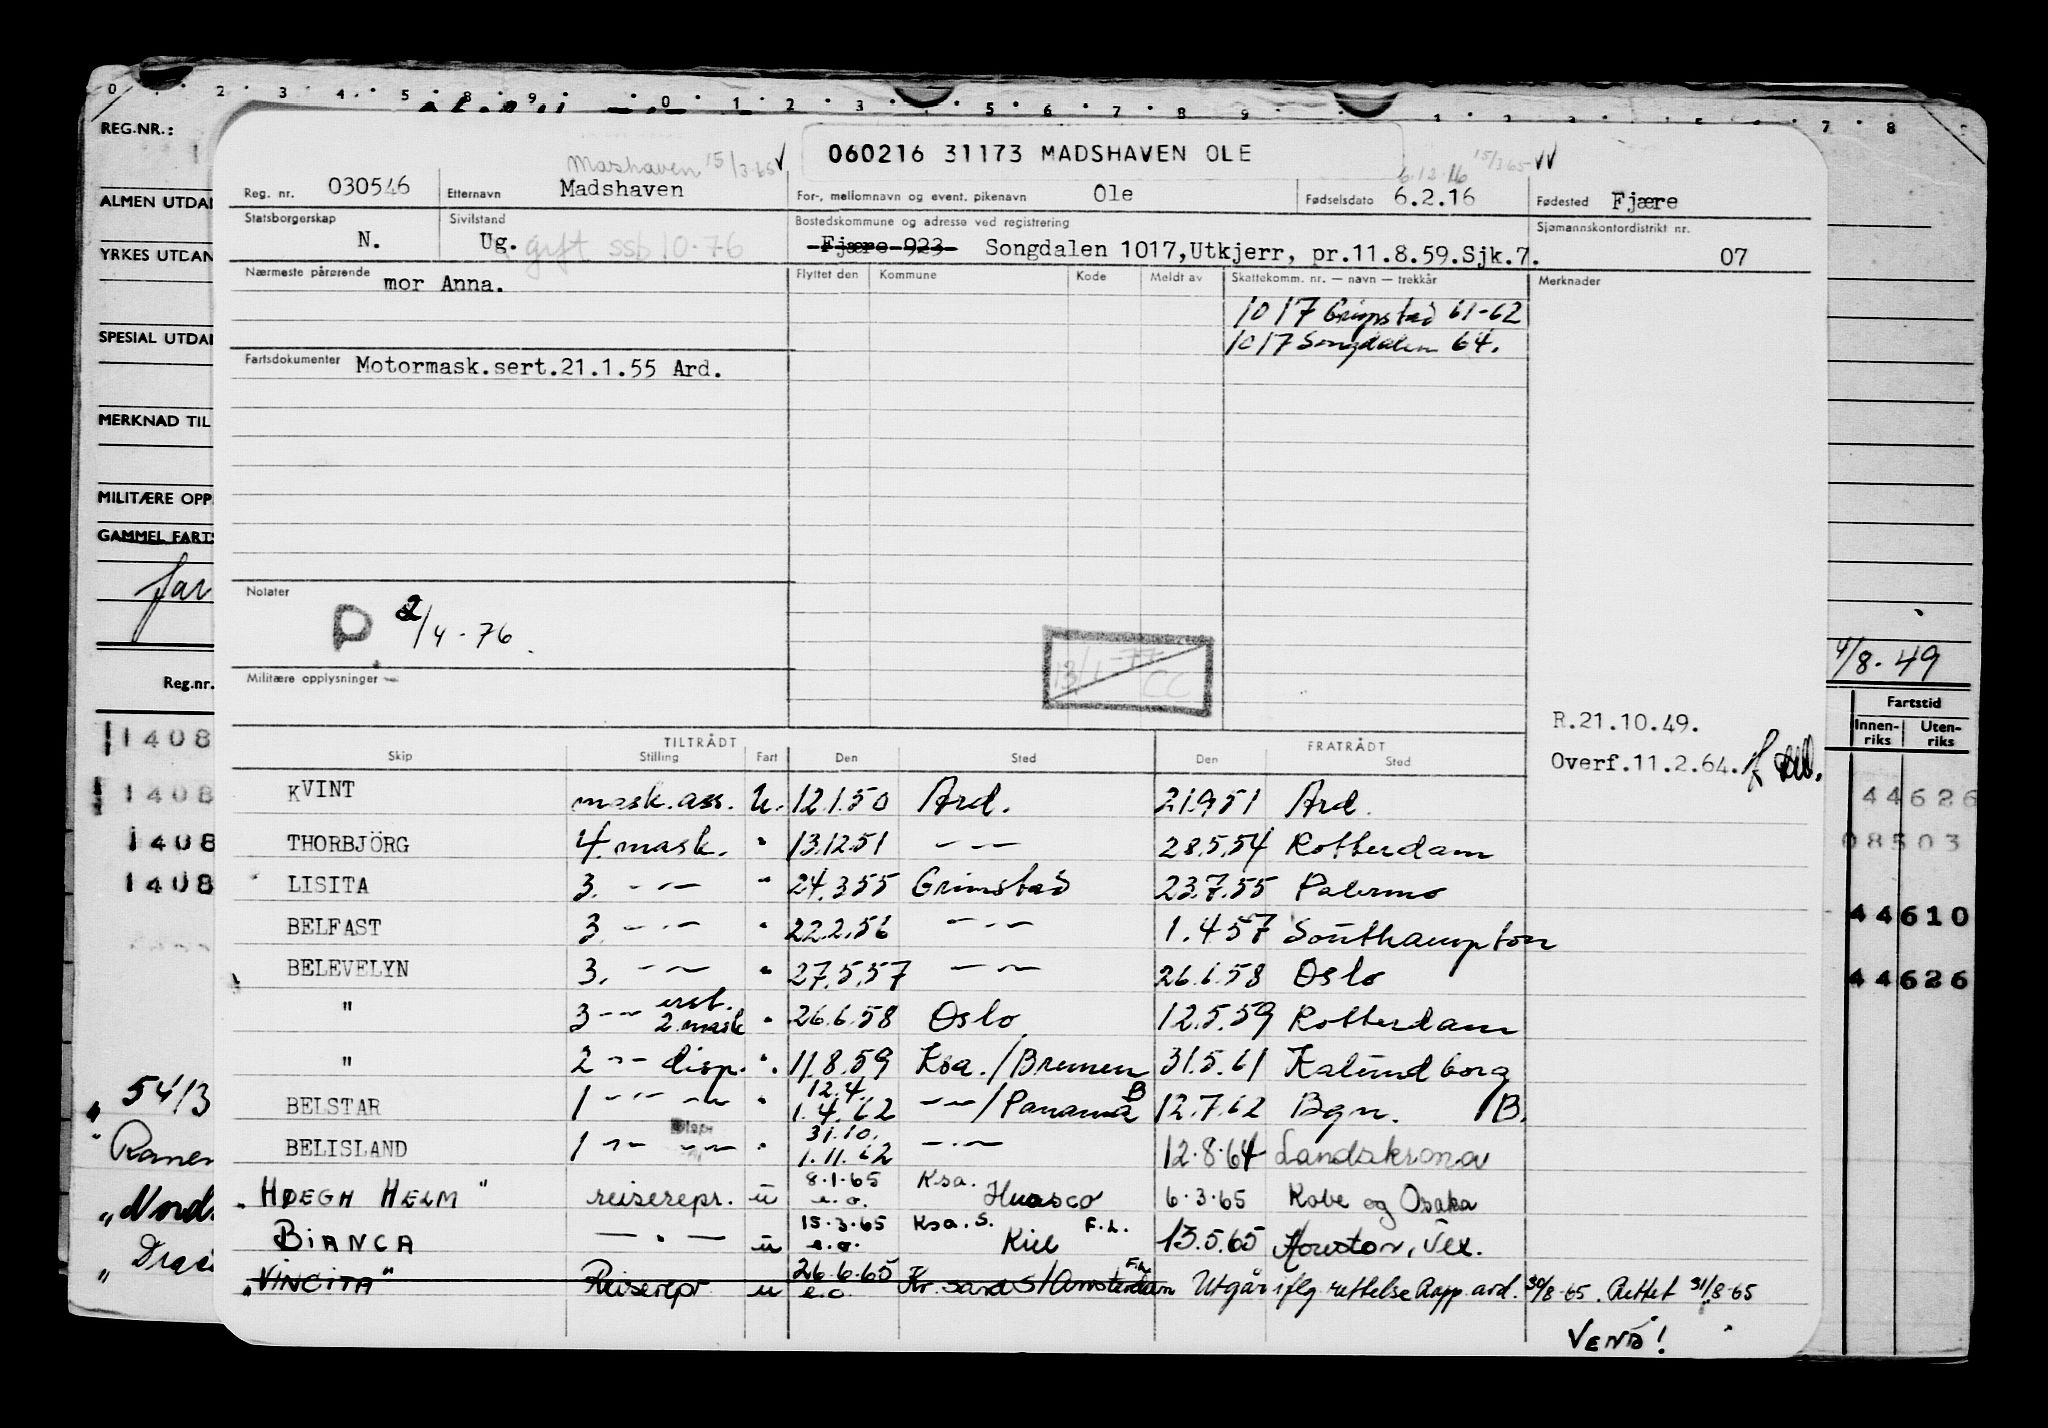 0 2 3 4 5 8 9 0 1 2 3 5 6 7 8 9 1 2 3 5 7 8
REG.NR.:
ALMEN UTDA
YRKES UTDAN
SPESIAL UTDA
MERKNAD TIL
MILITÆRE OPP
GAMMEL FARTS
far
Reg.nr.
1408
1408
1408
1408
" 54/3
" Ranen
" Nords
" Drag
Mashaven 15/3-65 √
060216 31173 MADSHAVEN OLE
6.12.16 15/3 65 √√
Reg. nr. 030546 Etternavn Madshaven For-, mellomnavn og event. pikenavn Ole Fødselsdato 6.2.16 Fødested Fjære
Statsborgerskap N. Sivilstand Ug. gift ssb 10-76 Bostedskommune og adresse ved registrering Fjære 923 Songdalen 1017,Utkjerr, pr.11.8.59.Sjk.7. Sjømannskontordistrikt nr. 07
Nærmeste pårørende mor Anna. Flyttet den Kommune Kode Meldt av Skattekomm. nr. — navn — trekkår Merknader
1017 Grimstad 61-62
1017 Songdalen 64.
Fartsdokumenter Motormask.sert.21.1.55 Ard.
Notater
P 2/4-76.
13/1-77 CC
Militære opplysninger
4/8-49
Fartstid
Innenriks Utenriks
44626
08503
44610
44626
R.21.10.49.
Overf.11.2.64.
TILTRÅDT FRATRÅDT
Skip Stilling Fart Den Sted Den Sted
KVINT mask.ass. U. 12.1.50 Ard. 21.9.51 Ard.
THORBJÖRG 4.mask. " 13.12.51 — " — 28.5.54 Rotterdam
LISITA 3. — " — " 24.3.55 Grimstad 23.7.55 Palermo
BELFAST 3. — " — " 22.2.56 — " — 1.4.57 Southampton
BELEVELYN 3. — " — " 27.5.57 — " — 26.6.58 Oslo
" 3 — " — erst. 2.mask " 26.6.58 Oslo 12.5.59 Rotterdam
" 2 — " — disp. " 11.8.59 Ksa./Bremen 31.5.61 Kalundborg
BELSTAR 1 — " — — " — " 12.4. 1.4.62 — " —/Panama B 12.7.62 Bgn. /B.
BELISLAND 1 — " — — " — disp " 31.10. 1.11.62 — " — 12.8.64 Landskrona
"HØEGH HELM" reiserepr. u 8.1.65 e.o. Ksa. Huasco 6.3.65 Kobe og Osaka
BIANCA — " — u 15.3.65 e.o. Ksa.S. Kiel F.L. 13.5.65 Houston, Tex.
"VINCITA" Reiserepr u 26.6.65 e.o Kr.sand S/Amsterdam F.L. Utgår iflg rettelse Rapp. ard. 30/8-65. Rettet 31/8-65
VEND!